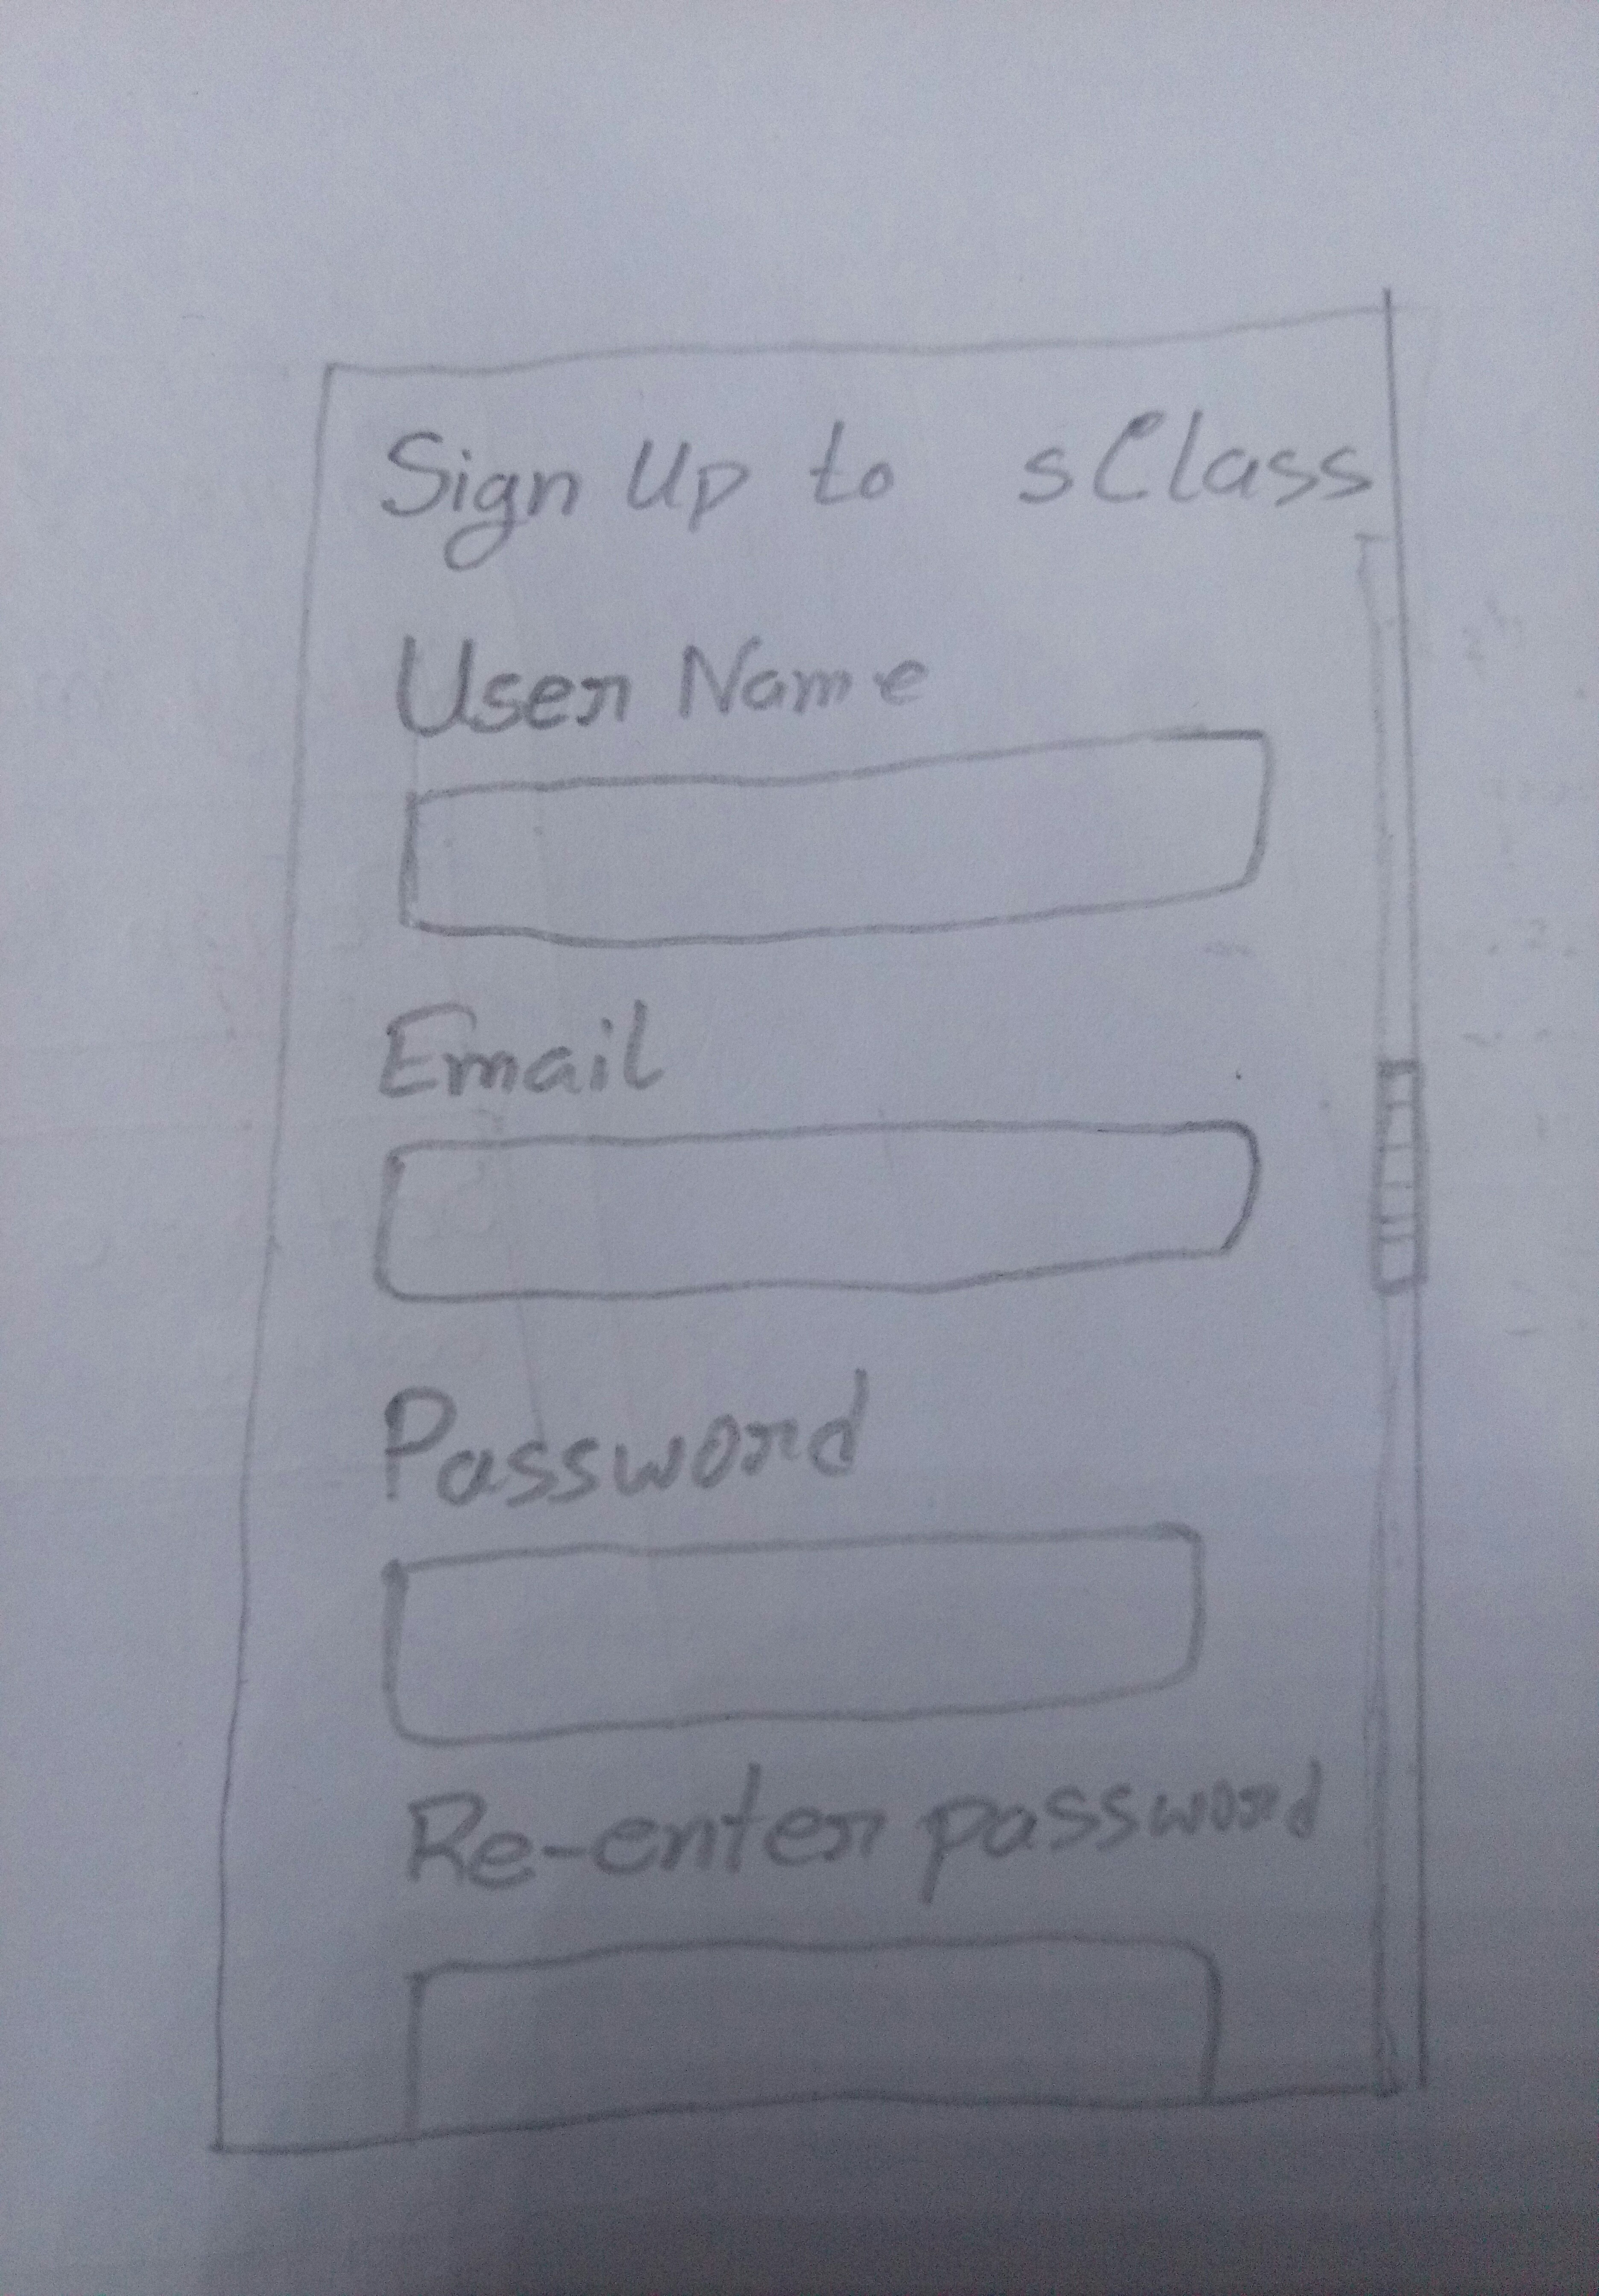 Sign Up to sClass
User Name
Email
Password
Re-enter password